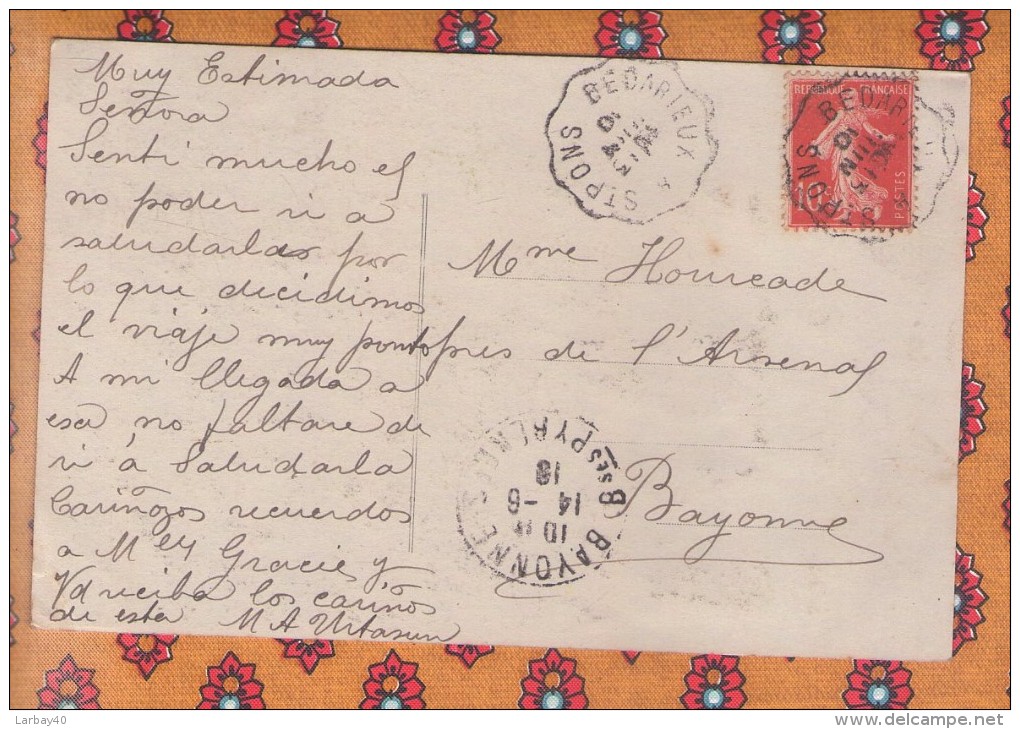 Muy Estimada
Señora
Senti mucho el
no poder ir a
saludarlas por
lo que decidimos
el viaje muy ponto
A mi llegada a
esa no faltare de
ir á Saludarla
Cariñozos recuerdos
a Melly Gracie y
Vd reciba los cariños
de esta M A Urtasun
BEDARIEUX
ST PONS
REPUBLIQUE FRANÇAISE
POSTES
BEDARIEUX
ST PONS
JUIN
Mme Hourcade
pres de l'Arsenal
Bayonne
BAYONNE
Bses PYRENEES
14 - 6
18
Larbay40
www.delcampe.net